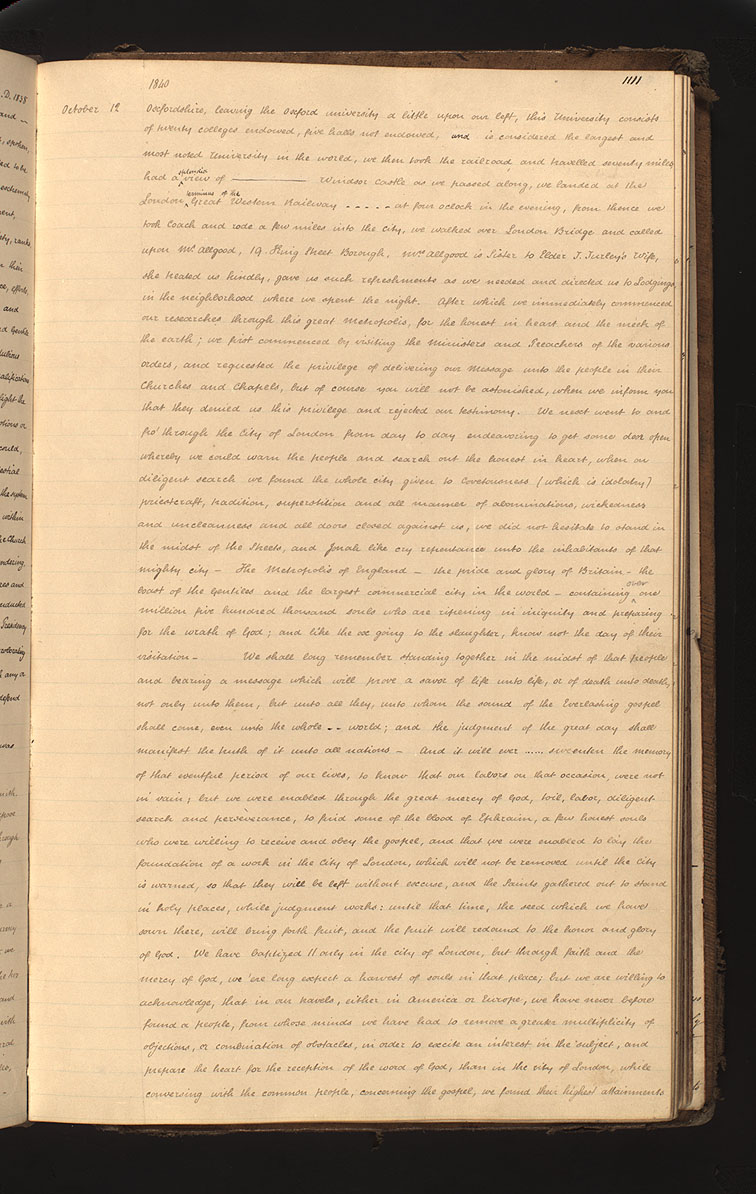 1840
1111
October 12 Oxfordshire, leaving the Oxford university a little upon our left, this University consists
of twenty colleges endowed, five halls not endowed, and is considered the largest and
most noted University in the world, we then took the railroad and travelled seventy miles
had a splendid view of Windsor Castle as we passed along, we landed at the
London terminus of the Great Western Railway - - - - - at four oclock in the evening, from thence we
took Coach and rode a few miles into the city, we walked over London Bridge and called
upon Mrs Allgood, 19. King Street Borough, Mrs Allgood is Sister to Elder T. Turley's Wife,
she treated us kindly, gave us such refreshments as we needed and directed us to Lodgings
in the neighborhood where we spent the night. After which we immediately commenced
our researches through this great Metropolis, for the honest in heart and the meek of
the earth; we first commenced by visiting the Ministers and Preachers of the various
orders, and requested the privilege of delivering our Message unto the people in their
Churches and Chapels, but of course you will not be astonished, when we inform you
that they denied us this privilege and rejected our testimony. We next went to and
fro' through the City of London from day to day endeavoring to get some door open
whereby we could warn the people and search out the honest in heart, when on
diligent search we found the whole city given to Covetousness (which is idolatry)
priestcraft, tradition, superstition and all manner of abominations, wickedness
and uncleanness and all doors closed against us, we did not hesitate to stand in
the midst of the Streets, and Jonah like cry repentance unto the inhabitants of that
mighty city — The Metropolis of England — the pride and glory of Britain — the
boast of the Gentiles and the largest commercial city in the world — containing over one
million five hundred thousand souls who are ripening in iniquity and preparing
for the wrath of God; and like the ox going to the slaughter, know not the day of their
visitation — We shall long remember standing together in the midst of that people
and bearing a message which will prove a savor of life unto life, or of death unto death,
not only unto them, but unto all they, unto whom the sound of the Everlasting gospel
shall come, even unto the whole - - world; and the judgment of the great day shall
manifest the truth of it unto all nations — And it will ever ...... sweeten the memory
of that eventful period of our lives, to know that our labors on that occasion, were not
in vain; but we were enabled through the great mercy of God, toil, labor, diligent
search and perseverance, to find some of the blood of Ephraim, a few honest souls
who were willing to receive and obey the gospel, and that we were enabled to lay the
foundation of a work in the City of London, which will not be removed until the City
is warned, so that they will be left without excuse, and the Saints gathered out to stand
in holy places, while judgment works: until that time, the seed which we have
sown there, will bring forth fruit, and the fruit will redound to the honor and glory
of God. We have baptized 11 only in the city of London, but through faith and the
mercy of God, we 'ere long expect a harvest of souls in that place; but we are willing to
acknowledge, that in our travels, either in America or Europe, we have never before
found a people, from whose minds we have had to remove a greater multiplicity of
objections, or combination of obstacles, in order to excite an interest in the subject, and
prepare the heart for the reception of the word of God, than in the city of London, while
conversing with the common people, concerning the gospel, we found their highest attainments